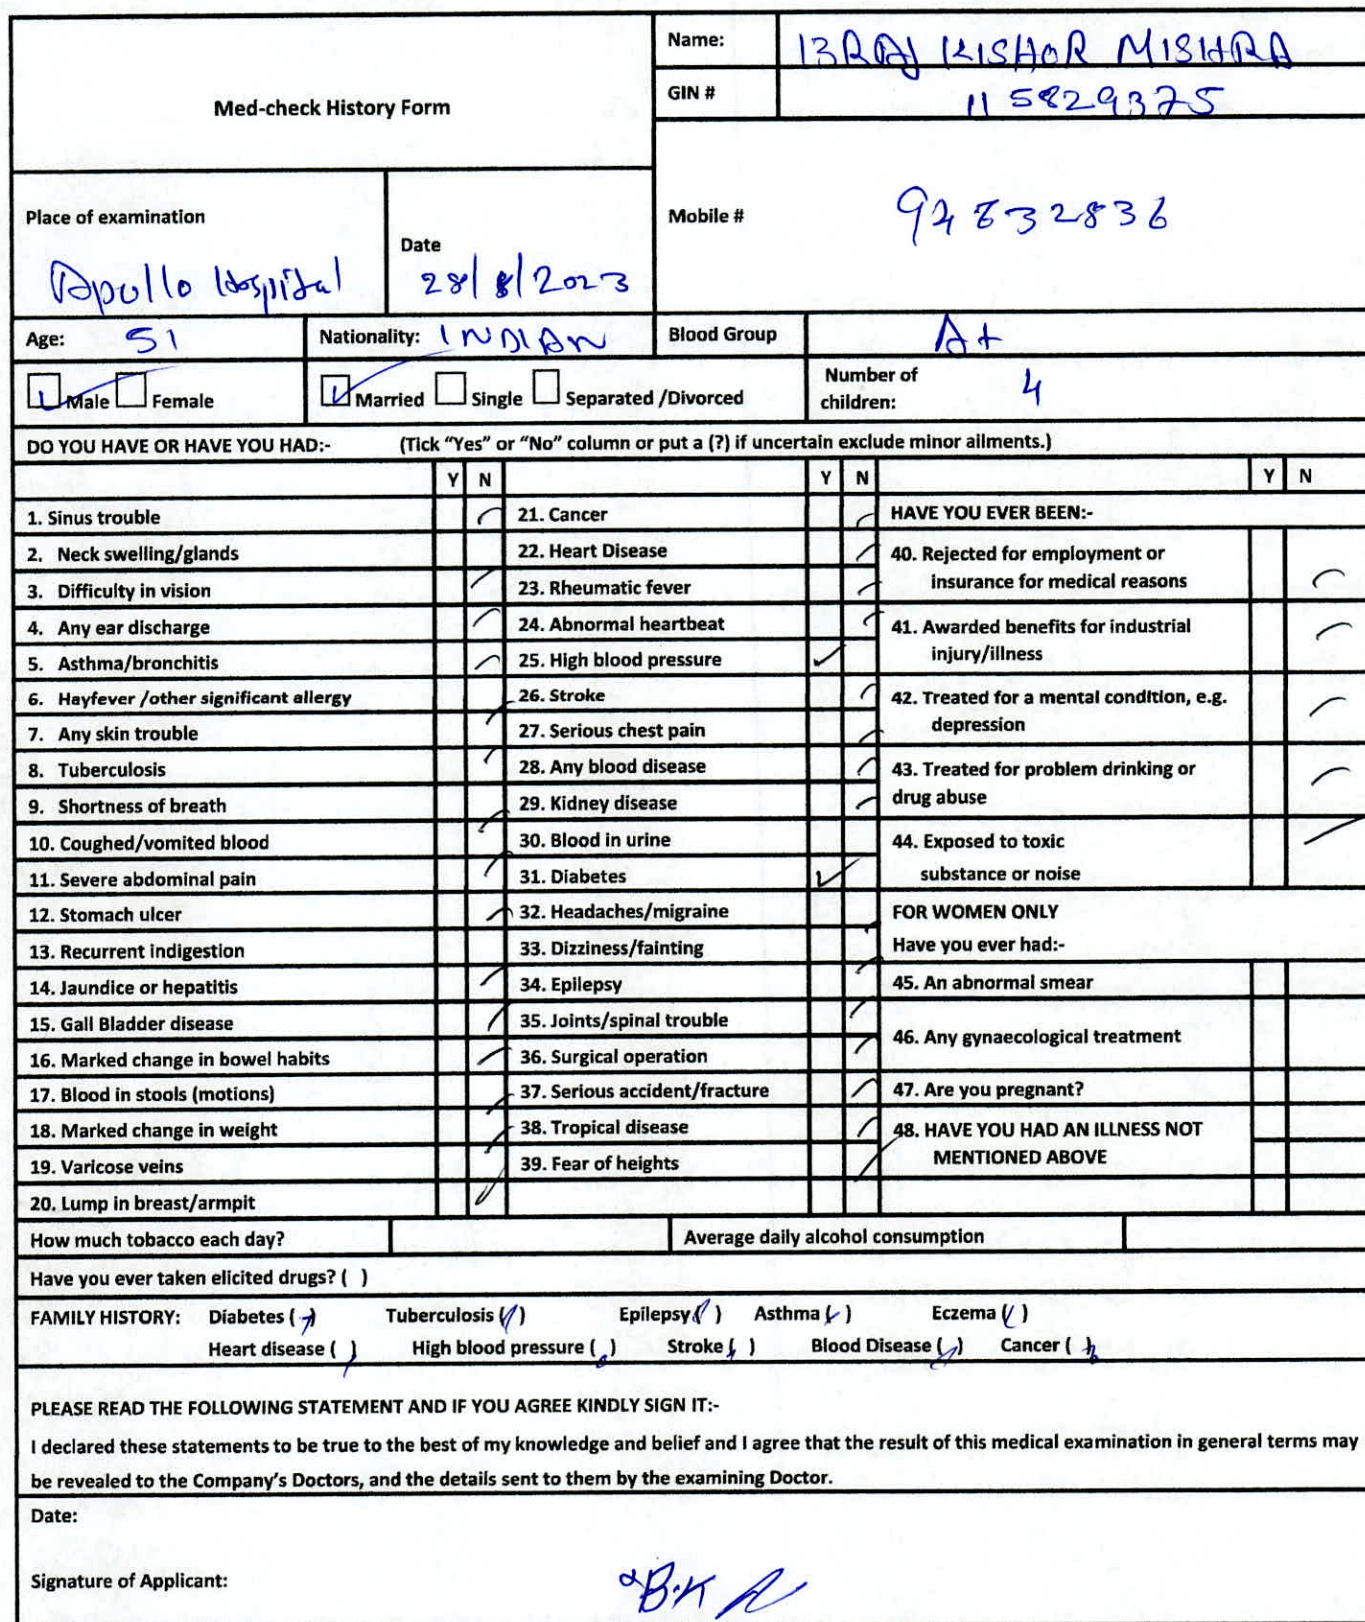 Name: BRAJ KISHOR MISHRA
Med-check History Form
GIN # 115829375
Place of examination
Apollo Hospital
Date
28/8/2023
Mobile #
Age: 51
Nationality: INDIAN
Blood Group A+
Male Female
Married Single Separated /Divorced
Number of children: 4
DO YOU HAVE OR HAVE YOU HAD:- (Tick “Yes” or “No” column or put a (?) if uncertain exclude minor ailments.)
Y N Y N Y N
1. Sinus trouble
2. Neck swelling/glands
3. Difficulty in vision
4. Any ear discharge
5. Asthma/bronchitis
6. Hayfever /other significant allergy
7. Any skin trouble
8. Tuberculosis
9. Shortness of breath
10. Coughed/vomited blood
11. Severe abdominal pain
12. Stomach ulcer
13. Recurrent indigestion
14. Jaundice or hepatitis
15. Gall Bladder disease
16. Marked change in bowel habits
17. Blood in stools (motions)
18. Marked change in weight
19. Varicose veins
20. Lump in breast/armpit
21. Cancer
22. Heart Disease
23. Rheumatic fever
24. Abnormal heartbeat
25. High blood pressure ✓
26. Stroke
27. Serious chest pain
28. Any blood disease
29. Kidney disease
30. Blood in urine
31. Diabetes ✓
32. Headaches/migraine
33. Dizziness/fainting
34. Epilepsy
35. Joints/spinal trouble
36. Surgical operation
37. Serious accident/fracture
38. Tropical disease
39. Fear of heights
HAVE YOU EVER BEEN:-
40. Rejected for employment or
insurance for medical reasons
41. Awarded benefits for industrial
injury/illness
42. Treated for a mental condition, e.g.
depression
43. Treated for problem drinking or
drug abuse
44. Exposed to toxic
substance or noise
FOR WOMEN ONLY
Have you ever had:-
45. An abnormal smear
46. Any gynaecological treatment
47. Are you pregnant?
48. HAVE YOU HAD AN ILLNESS NOT
MENTIONED ABOVE
How much tobacco each day?
Average daily alcohol consumption
Have you ever taken elicited drugs? ( )
FAMILY HISTORY: Diabetes ( ) Tuberculosis ( ) Epilepsy ( ) Asthma ( ) Eczema ( )
Heart disease ( ) High blood pressure ( ) Stroke ( ) Blood Disease ( ) Cancer ( )
PLEASE READ THE FOLLOWING STATEMENT AND IF YOU AGREE KINDLY SIGN IT:-
I declared these statements to be true to the best of my knowledge and belief and I agree that the result of this medical examination in general terms may
be revealed to the Company’s Doctors, and the details sent to them by the examining Doctor.
Date:
Signature of Applicant: